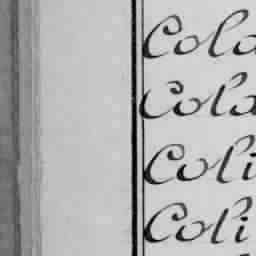 Cola
Cola
Coli
Coli